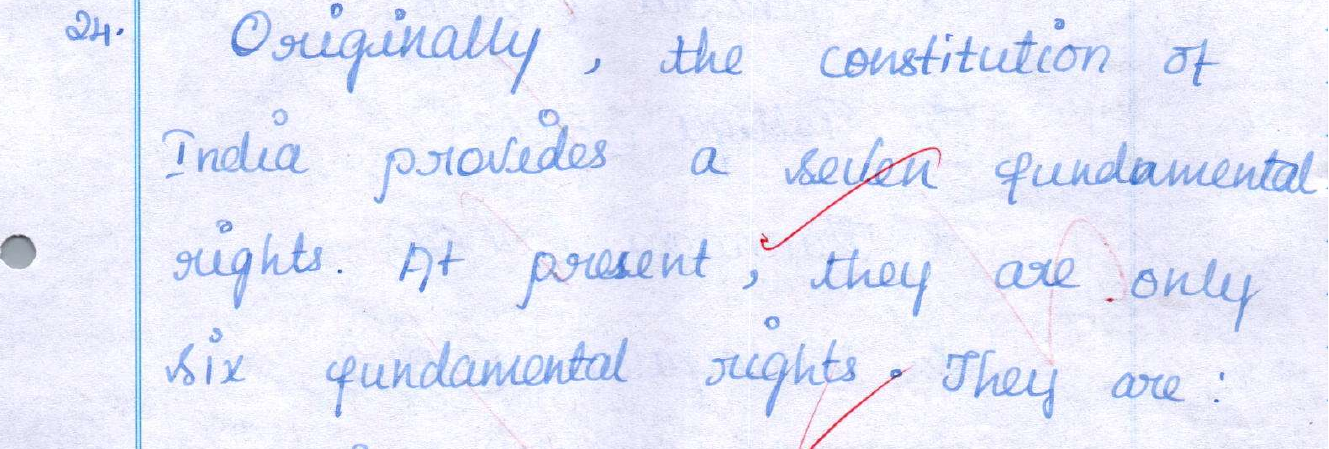 24. Originally, the constitution of
India provides a seven fundamental
rights. At present, they are only
six fundamental rights. They are: